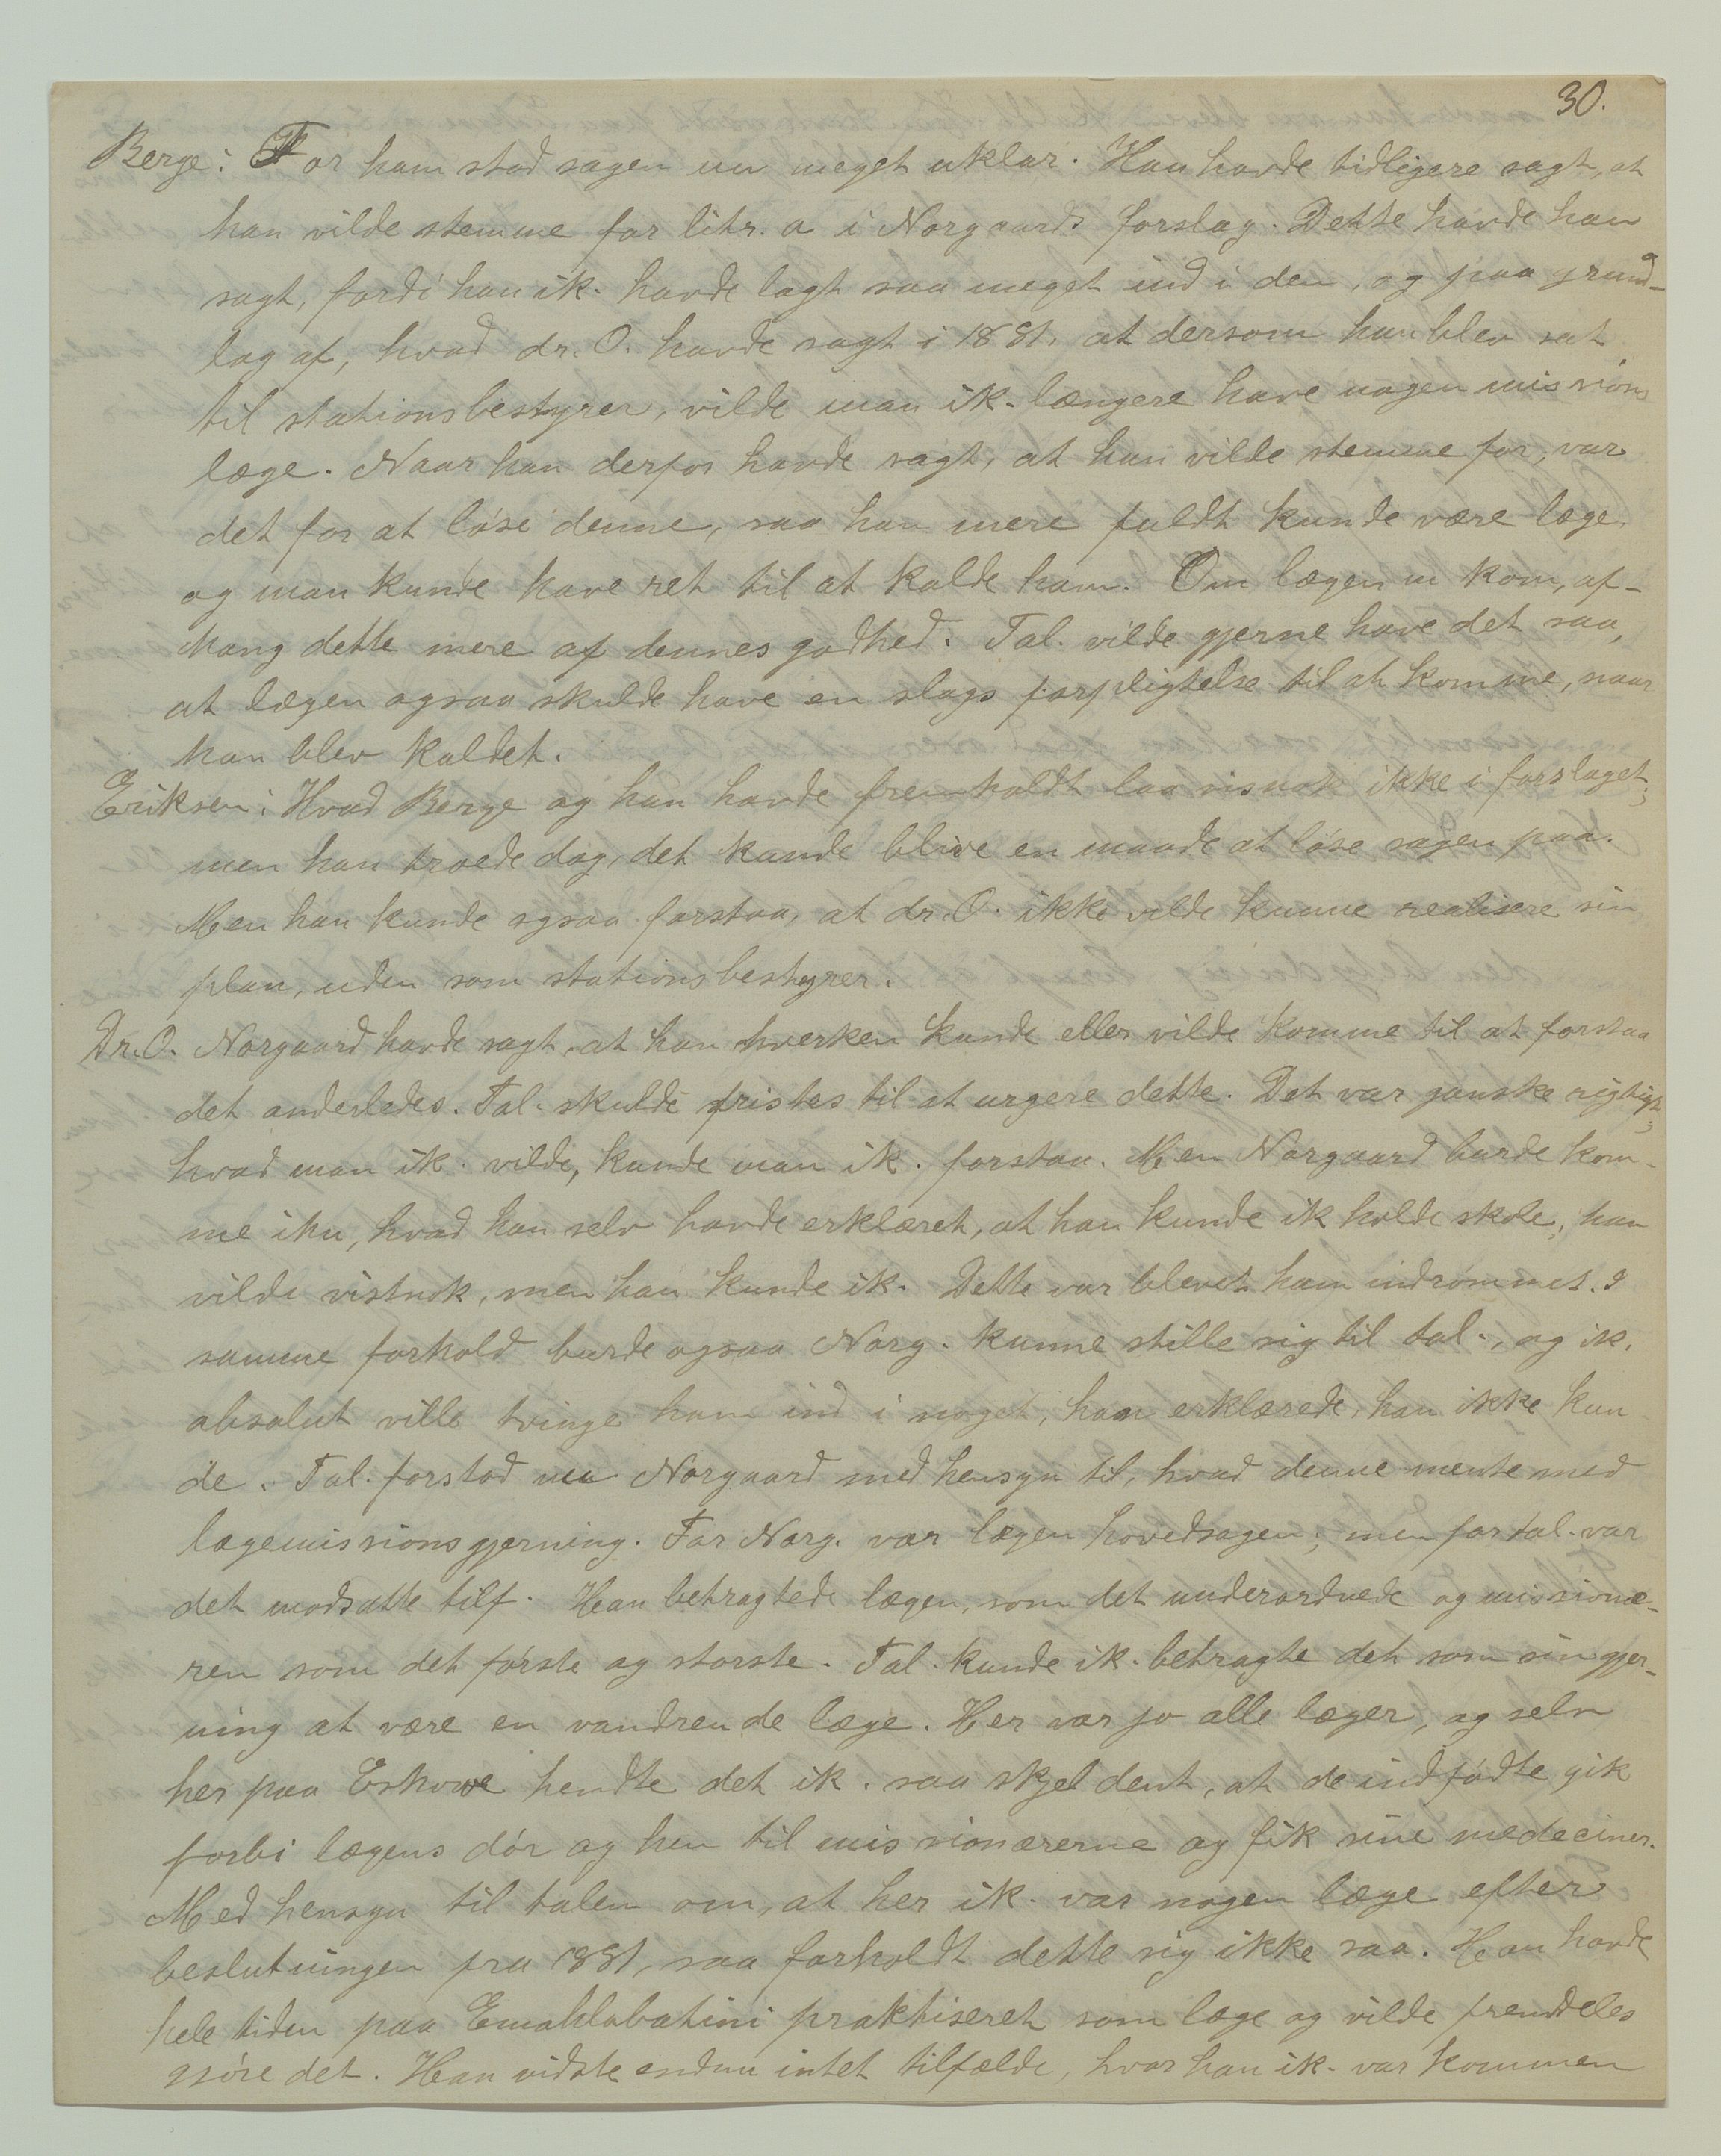 30.
Berge: For ham stod sagen nu meget uklar. Han havde tidligere sagt, at
han vilde stemme for litr. a i Norgaards forslag. Dette havde han
sagt, fordi han ik. havde lagt saa meget ind i den, og paa grund-
lag af, hvad dr. O. havde sagt i 1881, at dersom han blev sat
til stationsbestyrer, vilde man ik. længere have nogen missions
læge. Naar han derfor havde sagt, at han vilde stemme for, var
det for at løse denne, saa han mere fuldt kunde være læge,
og man kunde have ret til at kalde ham. Om lægen nu kom, af-
hang dette mere af dennes godhed. Tal. vilde gjerne have det saa,
at lægen ogsaa skulde have en slags forpligtelse til at komme, naar
han blev kaldet.
Eriksen: Hvad Berge og han havde fremholdt laa visnok ikke i forslaget;
men han troede dog, det kunde blive en maade at løse sagen paa.
Men han kunde ogsaa forstaa, at dr. O. ikke vilde kunne realisere sin
plan, uden som stationsbestyrer.
Dr. O. Norgaard havde sagt, at han hverken kunde eller vilde komme til at forstaa
det anderledes. Tal. skulde fristes til at urgere dette. Det var ganske rigtigt;
hvad man ik. vilde, kunde man ik. forstaa. Men Norgaard burde kom-
me ihu, hvad han selv havde erklæret, at han kunde ik holde skole; han
vilde vistnok, men han kunde ik. Dette var blevet ham indrømmet. I
samme forhold burde ogsaa Norg. kunne stille sig til tal., og ik.
absolut ville tvinge ham ind i noget, han erklærede, han ikke kun
de. Tal. forstod nu Norgaard med hensyn til, hvad denne mente med
lægemissionsgjerning. For Norg. var lægen hovedsagen; men for tal. var
det modsatte tilf. Han betragtede lægen, som det underordnede og missionæ-
ren som det første og største. Tal. kunde ik. betragte det som sin gjer-
ning at være en vandrende læge. Her var jo alle læger, og selv
her paa Eshowe hendte det ik. saa skjeldent, at de indfødte gik
forbi lægens dør og hen til missionærerne og fik sine mediciner.
Med hensyn til talen om, at her ik. var nogen læge efter
beslutningen fra 1881, saa forholdt dette sig ikke saa. Han havde
hele tiden paa Emahlabatini praktiseret som læge og vilde fremdeles
gjøre det. Han vidste endnu intet tilfælde, hvor han ik. var kommen